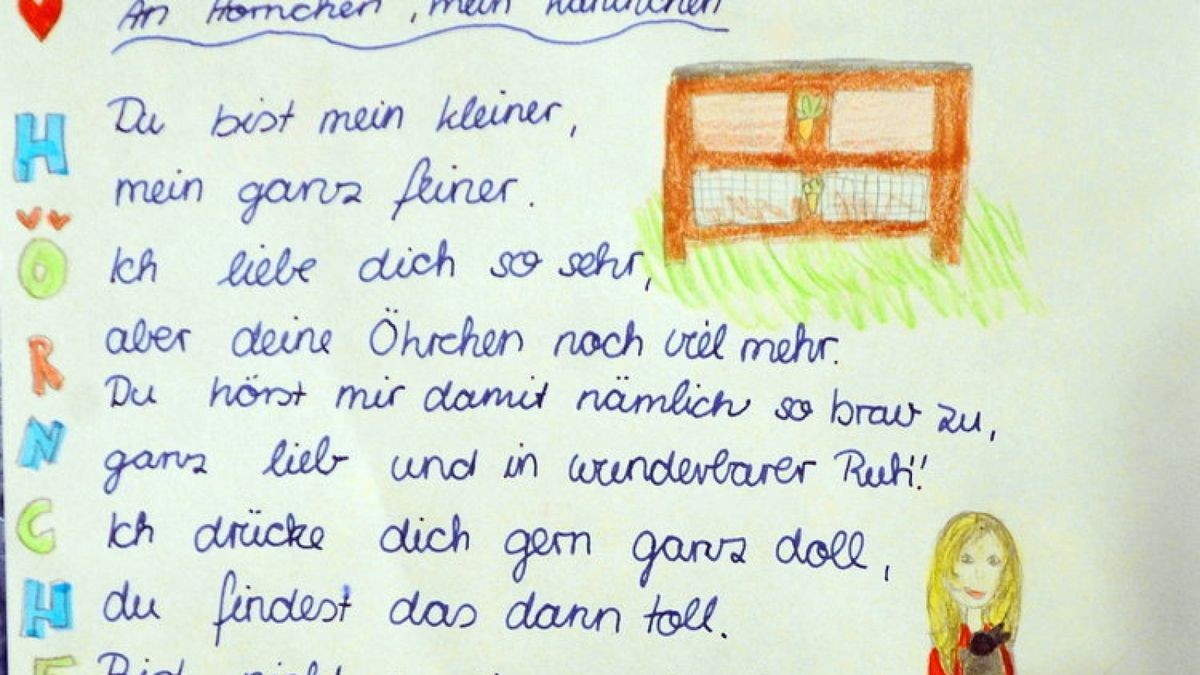 An Hörnchen, mein Kaninchen
H
Ö
R
N
C
H
E
Du bist mein kleiner,
mein ganz feiner.
Ich liebe dich so sehr,
aber deine Öhrchen noch viel mehr.
Du hörst mir damit nämlich so brav zu,
ganz lieb und in wunderbarer Ruh!
Ich drücke dich gern ganz doll,
du findest das dann toll.
Bist